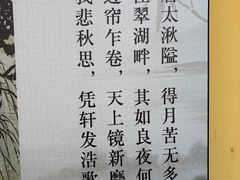 太湫隘，得月苦无多
翠湖畔，其如良夜何
帘乍卷，天上镜新磨
我悲秋思，凭轩发浩歌